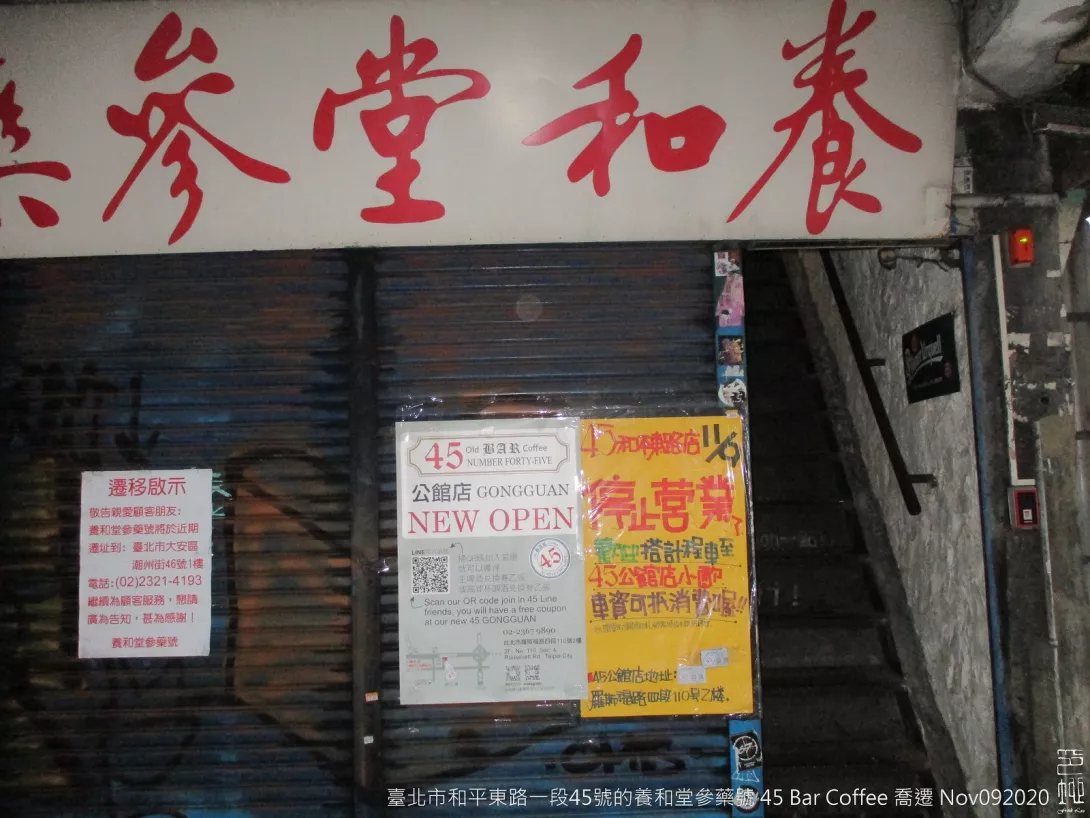 養和堂參藥
遷移啟示
敬告親愛顧客朋友：
養和堂參藥號將於近期
遷址到：臺北市大安區
潮州街46號1樓
電話：(02)2321-4193
繼續為顧客服務，懇請
廣為告知，甚為感謝！
養和堂參藥號
45 Old BAR Coffee
NUMBER FORTY-FIVE
公館店 GONGGUAN
NEW OPEN
LINE
45
Scan our QR code join in 45 Line
friends, you will have a free coupon
at our new 45 GONGGUAN
02-2367 9890
台北市羅斯福路四段110號2樓
2F., No. 110, Sec. 4,
Roosevelt Rd., Taipei City
45和平東路店 11/6
停止營業
搭計程車至
45公館店小酌
車資可抵消費喔!!
45公館店地址：
羅斯福路四段110号乙樓.
臺北市和平東路一段45號的養和堂參藥號/45 Bar Coffee 喬遷 Nov092020